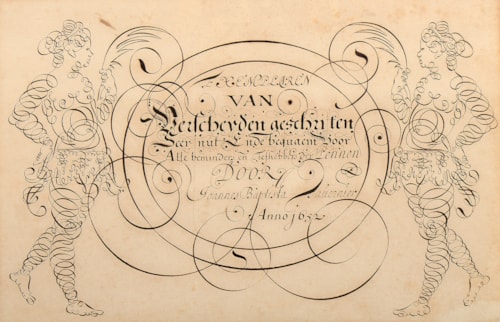 EXEMPLAREN
VAN
Verscheyden geschriften
Seer nut Ende bequaem Voor
Alle beminders en Liefhebbers der Pennen
DOOR
Joannes Baptista
Anno 1652